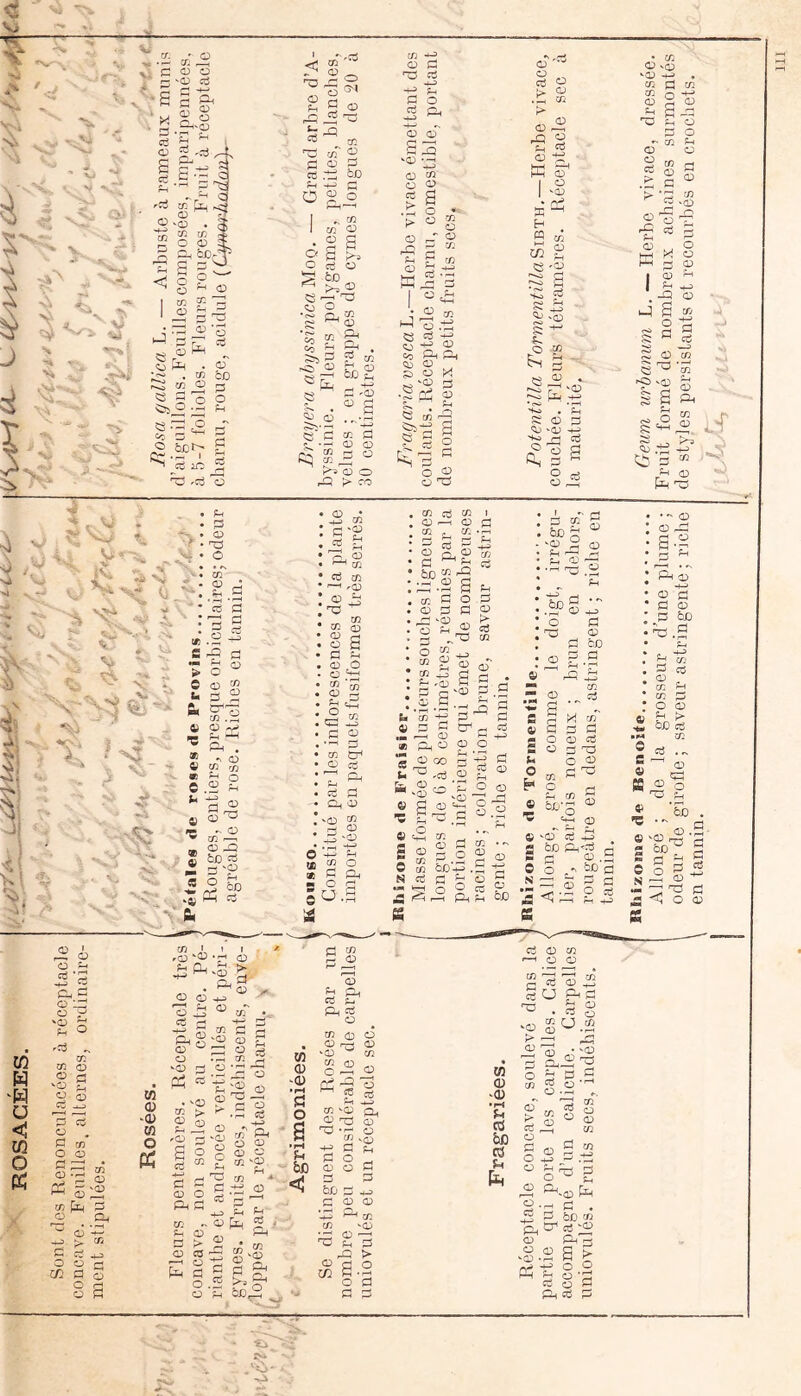 ROSACÉES.
Sont des Renonculacées à réceptacle
concave. Feuilles, alternes, ordinaire-
ment stipulées.
Rosées.
Fleurs pentamères. Réceptacle très
concave, non soulevé au centre. Pé-
rianthe et androcée verticillés et péri-
gynes. Fruits secs, indéhiscents, enve-
loppés par le réceptacle charnu.
Agrimoniées.
Se distinguent des Rosées par un
nombre peu considérable de carpelles
uniovulés et un réceptacle sec.
Fragariées.
Réceptacle concave, soulevé dans la
partie qui porte les carpelles. Calice
accompagné d'un calicule. Carpelles
uniovulés. Fruits secs, indéhiscents.
Pétales de Roses de Provins
Rouges, entiers, presque orbiculaires; odeur
agréable de rose. Riches en tannin.
Kousso
Constitué par les inflorescences de la plante
importées en paquets fusiformes très serrés.
Rhizome de Fraisier
Masse formée de plusieurs souches ligneuses
longues de 6 à 8 centimètres, réunies par la
portion inférieure qui émet de nombreuses
racines; coloration brune, saveur astrin-
gente; riche en tannin.
Rhizome de Tormentille
Allongé, gros comme le doigt, irrégu-
lier, parfois noueux; brun en dehors,
rougeâtre en dedans, astringent; riche en
tannin.
Rhizonne de Benoite
Allongé; de la grosseur d'une plume;
odeur de girofle; saveur astringente; riche
en tannin.
Rosa gallica L. — Arbuste à rameaux munis
d'aiguillons. Feuilles composées, imparipennées,
à 5-7 folioles. Fleurs rouges. Fruit à réceptacle
charnu, rouge, acidule (Cynorhodon).
Brayera abyssinica Moq. — Grand arbre d'A-
byssinie. Fleurs polygames, petites, blanches,
velues; en grappes de cymes longues de 20 à
30 centimètres.
Fragaria vesca L. — Herbe vivace émettant des
coulants. Réceptacle charnu, comestible, portant
de nombreux petits fruits secs.
Potentilla Tormentilla Sibth. — Herbe vivace,
couchée. Fleurs tétramères. Réceptacle sec à
la maturité.
Geum urbanum L. — Herbe vivace, dressée.
Fruit formé de nombreux achaines surmontés
de styles persistants et recourbés en crochets.
III